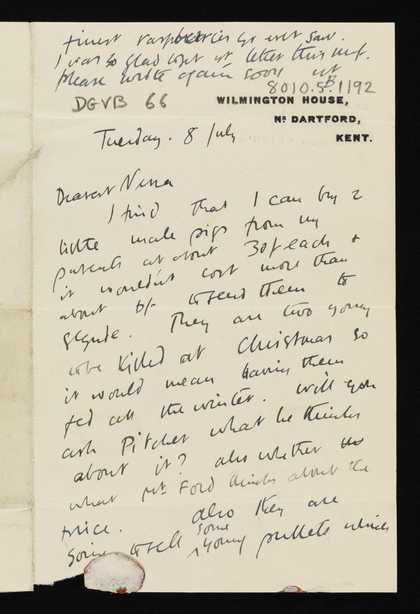 finest raspberries you ever saw.
I was so glad to get yr letter this mg.
please write again soon yr
B
8010.5.1192
DGVB 66
WILMINGTON HOUSE,
Nr DARTFORD,
KENT.
Tuesday. 8 July
Dearest Nessa
I find that I can buy 2
little male pigs from my
parents at about 30/- each &
it wouldn't cost more than
about 6/- to send them to
Glynde. They are two young
to be killed at Christmas so
it would mean having them
fed all the winter. Will you
ask Pitcher what he thinks
about it? also whether
what Mr Ford thinks about the
price. also they are
going to sell some
young pullets which